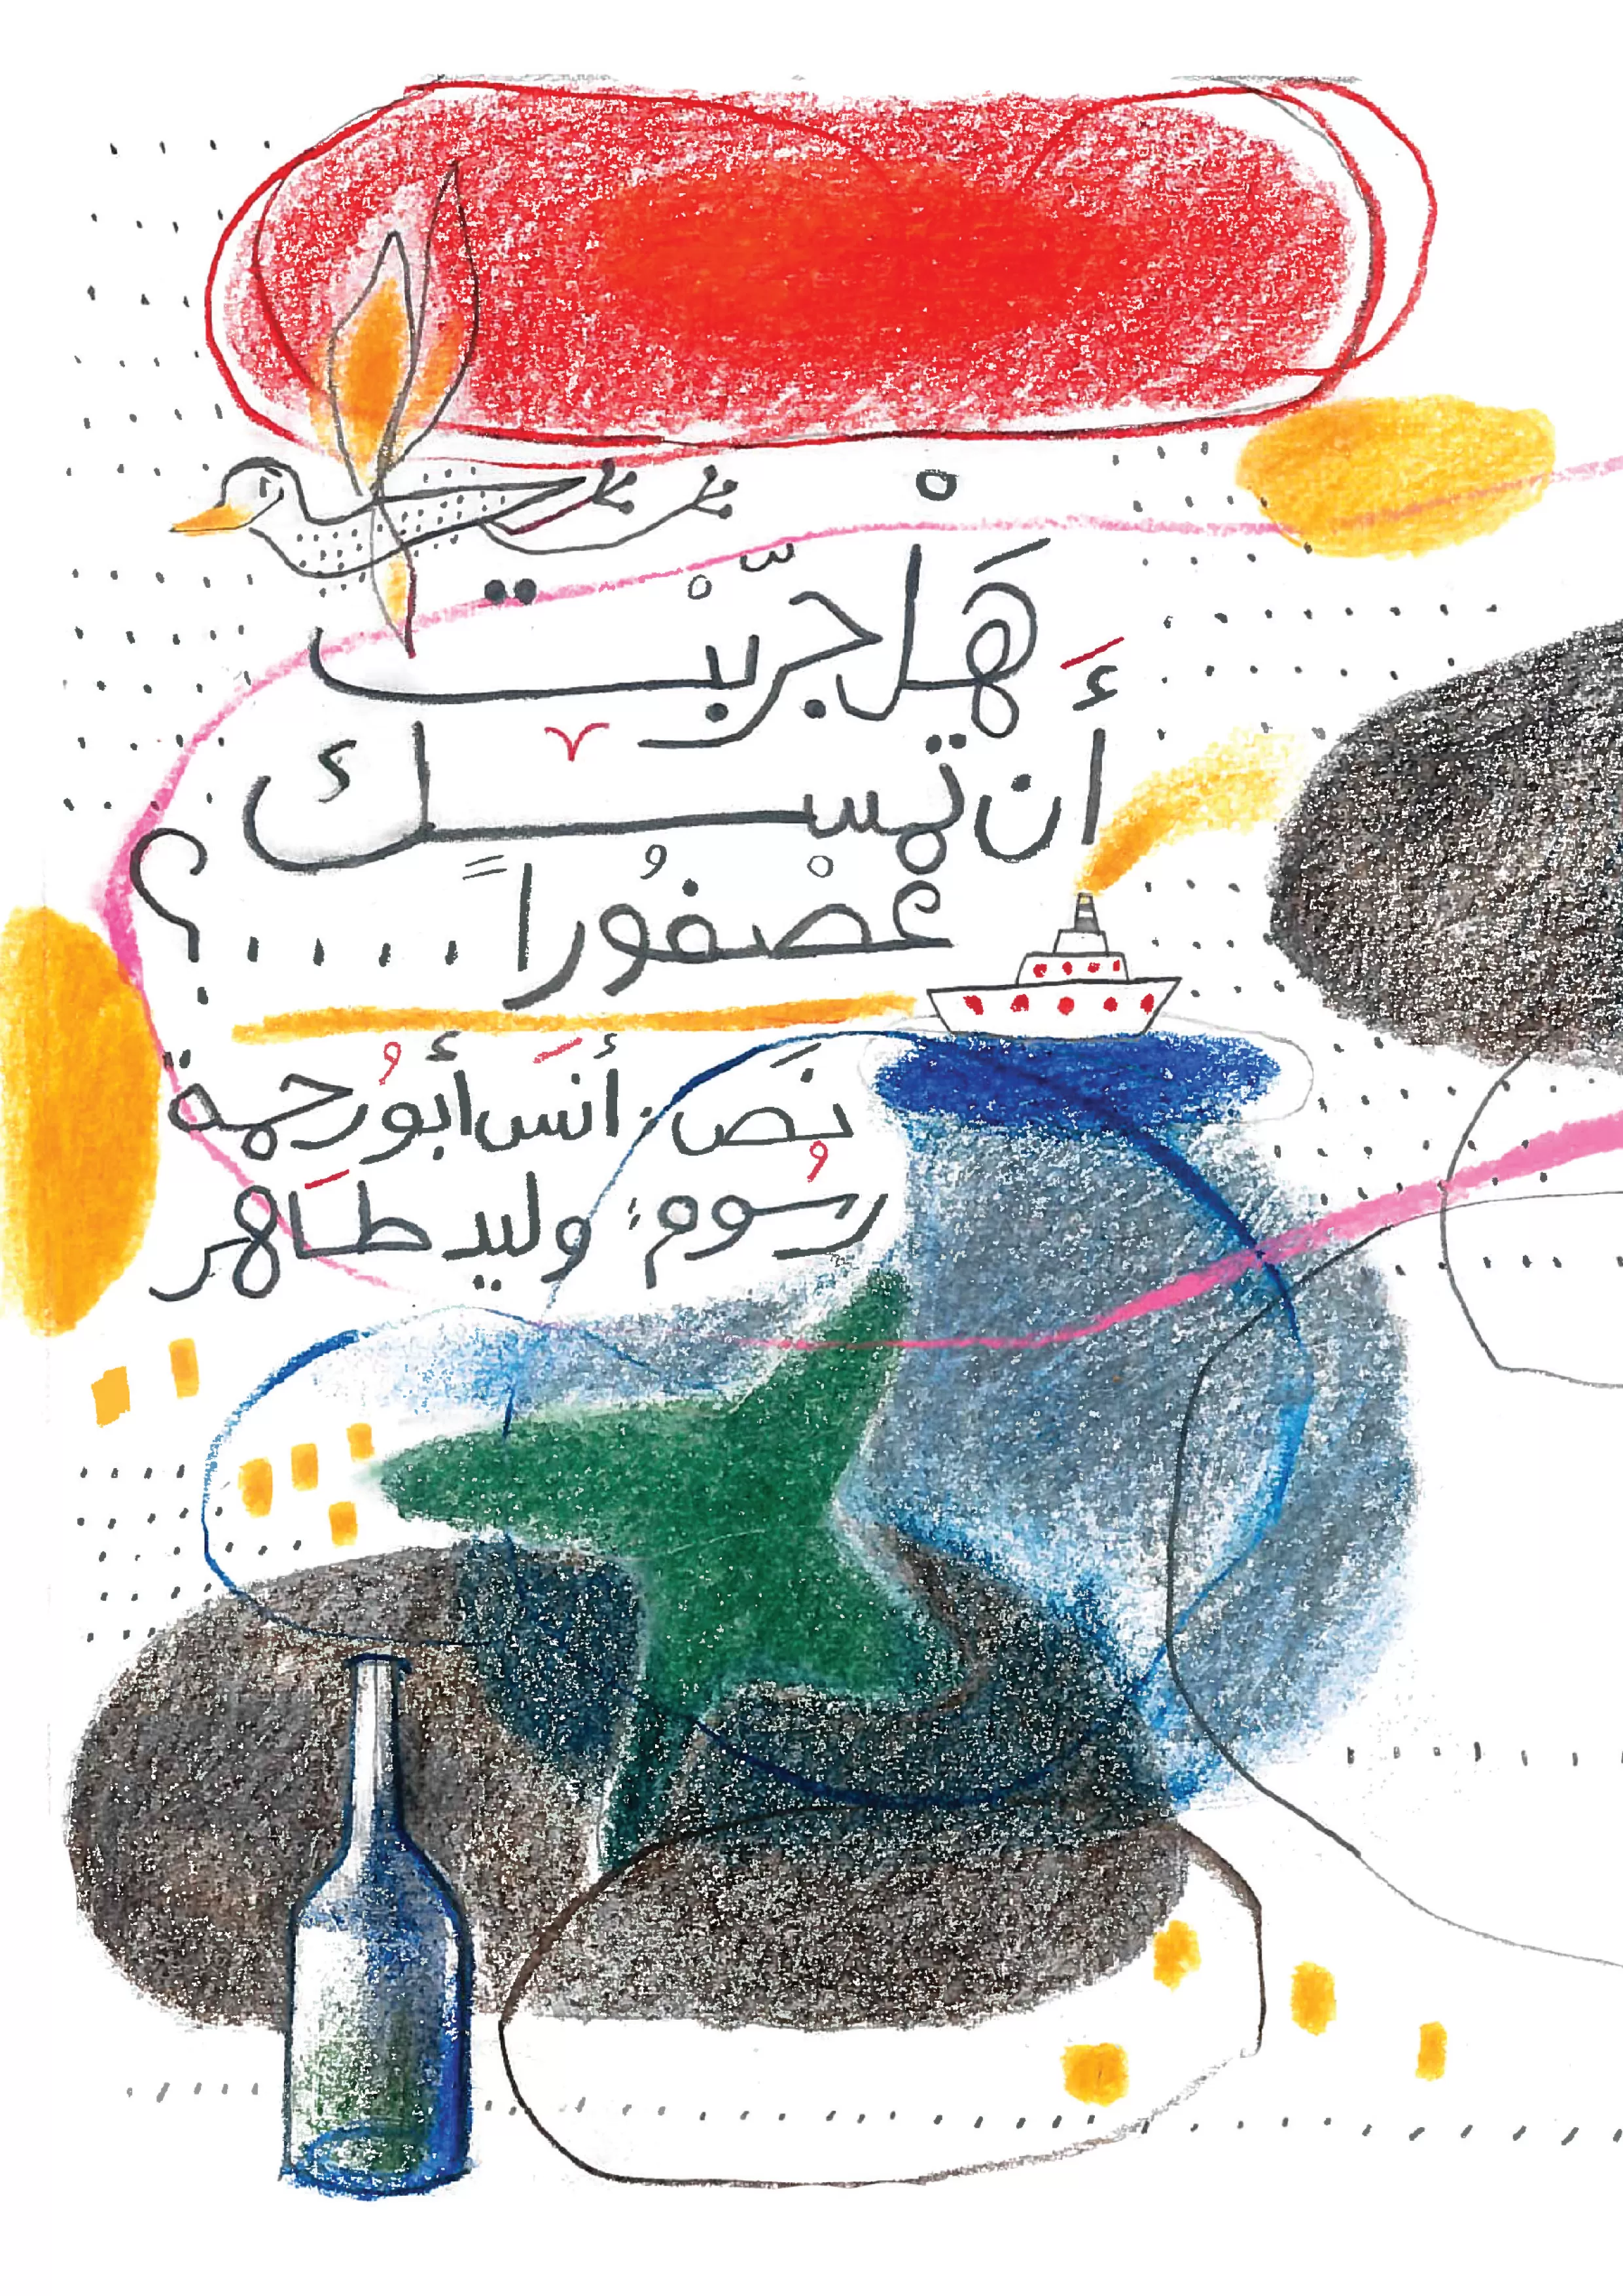 هَلْ جرّبْت
أَن تمسك
عصْفُوراً ....؟
نَص: أنَس أبوُرحمة
رسُوم: وليد طَاهر